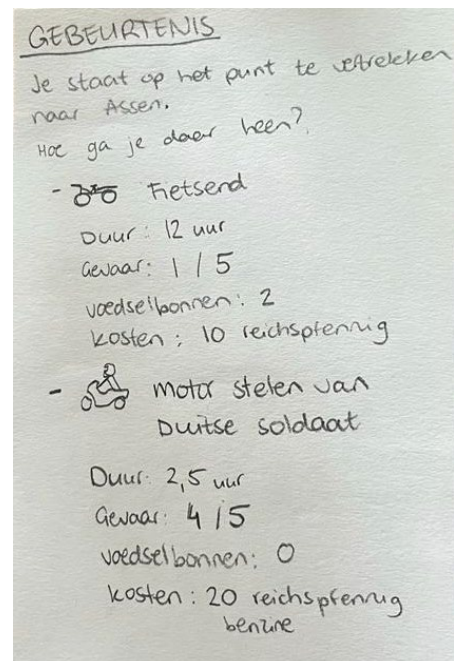 GEBEURTENIS
Je staat op het punt te vertrekken
naar Assen.
Hoe ga je daar heen?
- Fietsend
Duur: 12 uur
Gevaar: 1 / 5
voedselbonnen: 2
kosten: 10 reichspfennig
- motor stelen van
Duitse soldaat
Duur: 2,5 uur
Gevaar: 4 / 5
voedselbonnen: 0
kosten: 20 reichspfennig
benzine